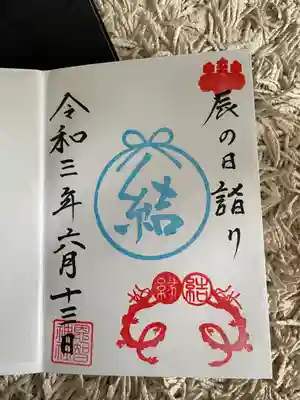 辰の日詣り
結
結
令和三年六月十三日